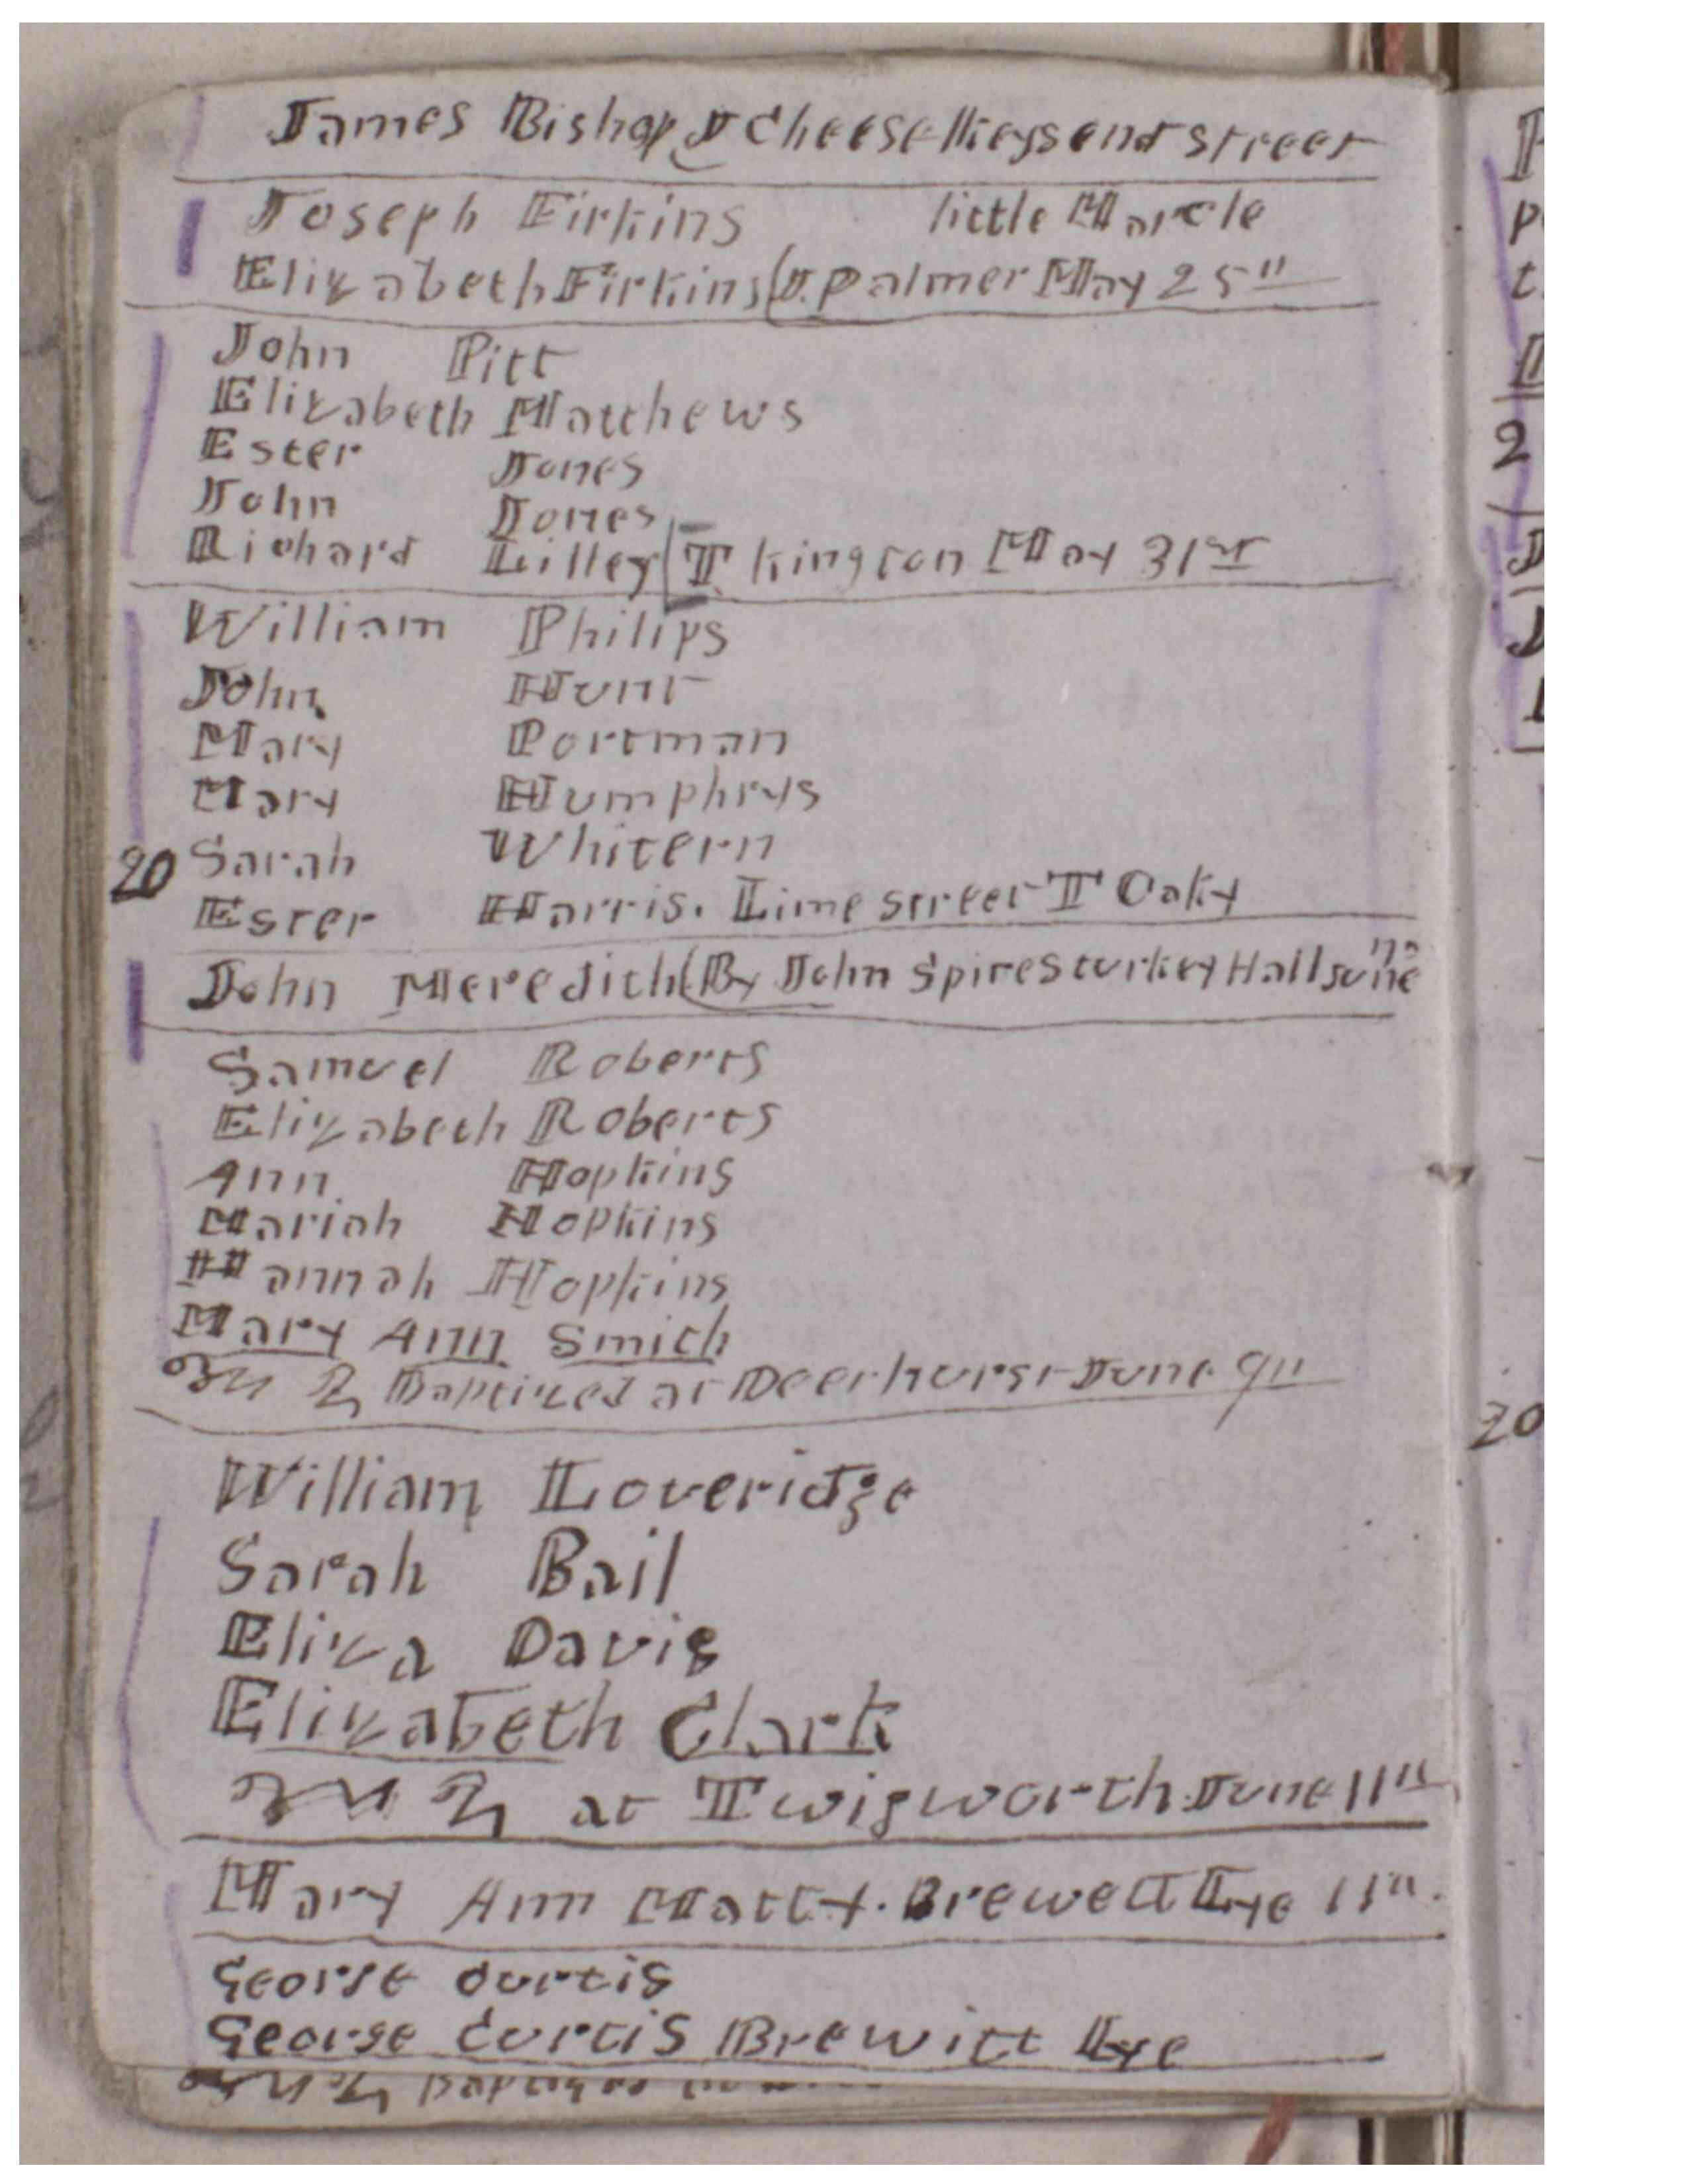 James Bishop J Cheese Keysend street
Joseph Firkins little Marcle
Elizabeth Firkins (J. Palmer May 25"
John Pitt
Elizabeth Matthews
Ester Jones
John Jones
Richard Lilley (T Kington May 31st
William Philips
John Hunt
Mary Portman
Mary Humphrys
20 Sarah Whitern
Ester Harris. Lime street T Oaky
John Meredith (By John Spires turkey Hall June
Samuel Roberts
Elizabeth Roberts
Ann Hopkins
Mariah Hopkins
Hannah Hopkins
Mary Ann Smith
Baptized at Deerhurst June 9"
William Loveridge
Sarah Bail
Eliza Davis
Elizabeth Clark
at Twigworth June 11"
Mary Ann Matty. Brewett Lye 11".
George Curtis
George Curtis Brewitt Lye
20